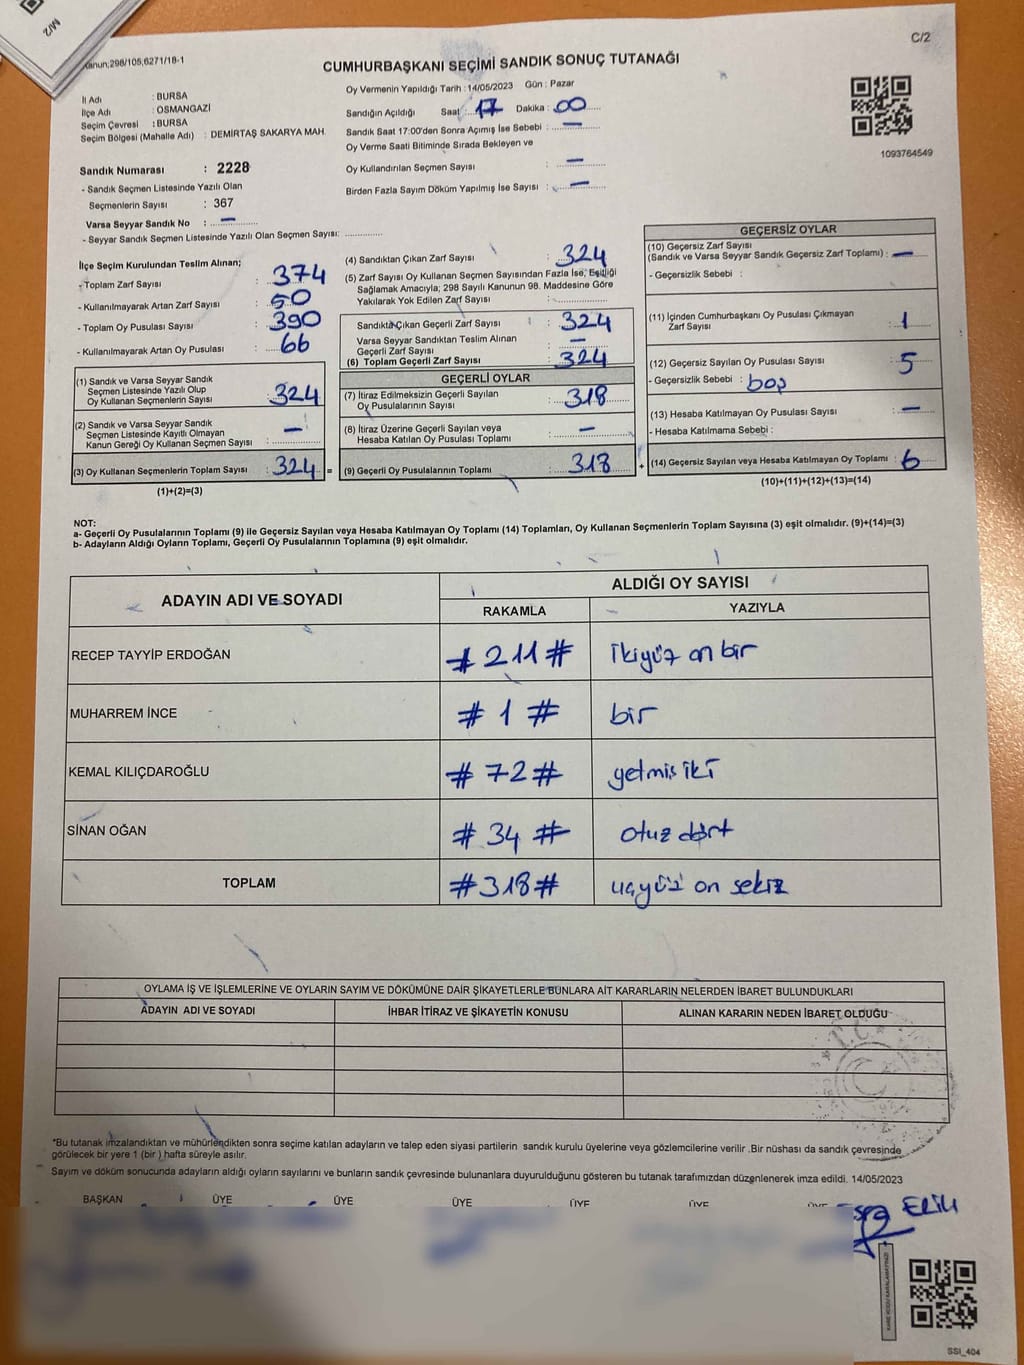 M/2
C/2
Kanun;298/105;6271/18-1
CUMHURBAŞKANI SEÇİMİ SANDIK SONUÇ TUTANAĞI
İl Adı : BURSA
İlçe Adı : OSMANGAZİ
Seçim Çevresi : BURSA
Seçim Bölgesi (Mahalle Adı) : DEMİRTAŞ SAKARYA MAH.
Sandık Numarası : 2228
- Sandık Seçmen Listesinde Yazılı Olan
Seçmenlerin Sayısı : 367
Varsa Seyyar Sandık No : —
- Seyyar Sandık Seçmen Listesinde Yazılı Olan Seçmen Sayısı: ..............
Oy Vermenin Yapıldığı Tarih : 14/05/2023 Gün : Pazar
Sandığın Açıldığı Saat : 17 Dakika : 00
Sandık Saat 17:00'den Sonra Açımış İse Sebebi : —
Oy Verme Saati Bitiminde Sırada Bekleyen ve
Oy Kullandırılan Seçmen Sayısı : —
Birden Fazla Sayım Döküm Yapılmış İse Sayısı : —
1093764549
İlçe Seçim Kurulundan Teslim Alınan;
- Toplam Zarf Sayısı : 374
- Kullanılmayarak Artan Zarf Sayısı : 50
- Toplam Oy Pusulası Sayısı : 390
- Kullanılmayarak Artan Oy Pusulası : 66
(1) Sandık ve Varsa Seyyar Sandık
Seçmen Listesinde Yazılı Olup
Oy Kullanan Seçmenlerin Sayısı : 324
(2) Sandık ve Varsa Seyyar Sandık
Seçmen Listesinde Kayıtlı Olmayan
Kanun Gereği Oy Kullanan Seçmen Sayısı : —
(3) Oy Kullanan Seçmenlerin Toplam Sayısı : 324 =
(1)+(2)=(3)
(4) Sandıktan Çıkan Zarf Sayısı : 324
(5) Zarf Sayısı Oy Kullanan Seçmen Sayısından Fazla İse, Eşitliği
Sağlamak Amacıyla; 298 Sayılı Kanunun 98. Maddesine Göre
Yakılarak Yok Edilen Zarf Sayısı :
Sandıkta Çıkan Geçerli Zarf Sayısı : 324
Varsa Seyyar Sandıktan Teslim Alınan
Geçerli Zarf Sayısı : —
(6) Toplam Geçerli Zarf Sayısı : 324
GEÇERLİ OYLAR
(7) İtiraz Edilmeksizin Geçerli Sayılan
Oy Pusulalarının Sayısı : 318
(8) İtiraz Üzerine Geçerli Sayılan veya
Hesaba Katılan Oy Pusulası Toplamı : —
(9) Geçerli Oy Pusulalarının Toplamı : 318 +
GEÇERSİZ OYLAR
(10) Geçersiz Zarf Sayısı
(Sandık ve Varsa Seyyar Sandık Geçersiz Zarf Toplamı) : —
- Geçersizlik Sebebi :
(11) İçinden Cumhurbaşkanı Oy Pusulası Çıkmayan
Zarf Sayısı : 1
(12) Geçersiz Sayılan Oy Pusulası Sayısı : 5
- Geçersizlik Sebebi : boş
(13) Hesaba Katılmayan Oy Pusulası Sayısı : —
- Hesaba Katılmama Sebebi :
(14) Geçersiz Sayılan veya Hesaba Katılmayan Oy Toplamı : 6
(10)+(11)+(12)+(13)=(14)
NOT:
a- Geçerli Oy Pusulalarının Toplamı (9) ile Geçersiz Sayılan veya Hesaba Katılmayan Oy Toplamı (14) Toplamları, Oy Kullanan Seçmenlerin Toplam Sayısına (3) eşit olmalıdır. (9)+(14)=(3)
b- Adayların Aldığı Oyların Toplamı, Geçerli Oy Pusulalarının Toplamına (9) eşit olmalıdır.
ADAYIN ADI VE SOYADI
ALDIĞI OY SAYISI
RAKAMLA YAZIYLA
RECEP TAYYİP ERDOĞAN #211# ikiyüz on bir
MUHARREM İNCE #1# bir
KEMAL KILIÇDAROĞLU #72# yetmiş iki
SİNAN OĞAN #34# otuz dört
TOPLAM #318# üçyüz on sekiz
OYLAMA İŞ VE İŞLEMLERİNE VE OYLARIN SAYIM VE DÖKÜMÜNE DAİR ŞİKAYETLERLE BUNLARA AİT KARARLARIN NELERDEN İBARET BULUNDUKLARI
ADAYIN ADI VE SOYADI İHBAR İTİRAZ VE ŞİKAYETİN KONUSU ALINAN KARARIN NEDEN İBARET OLDUĞU
T.C.
*Bu tutanak imzalandıktan ve mühürlendikten sonra seçime katılan adayların ve talep eden siyasi partilerin sandık kurulu üyelerine veya gözlemcilerine verilir .Bir nüshası da sandık çevresinde
görülecek bir yere 1 (bir ) hafta süreyle asılır.
Sayım ve döküm sonucunda adayların aldığı oyların sayılarını ve bunların sandık çevresinde bulunanlara duyurulduğunu gösteren bu tutanak tarafımızdan düzenlenerek imza edildi. 14/05/2023
BAŞKAN ÜYE ÜYE ÜYE ÜYE ÜYE ÜYE
SSI_404